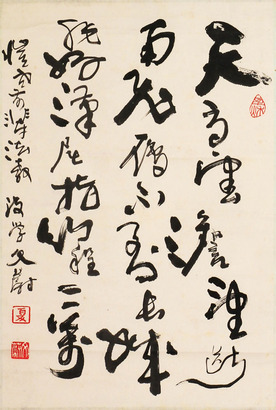 天高雲澹望斷
南飛雁不到長城
非好漢屈指行程二萬
前輩法教 後學
夏